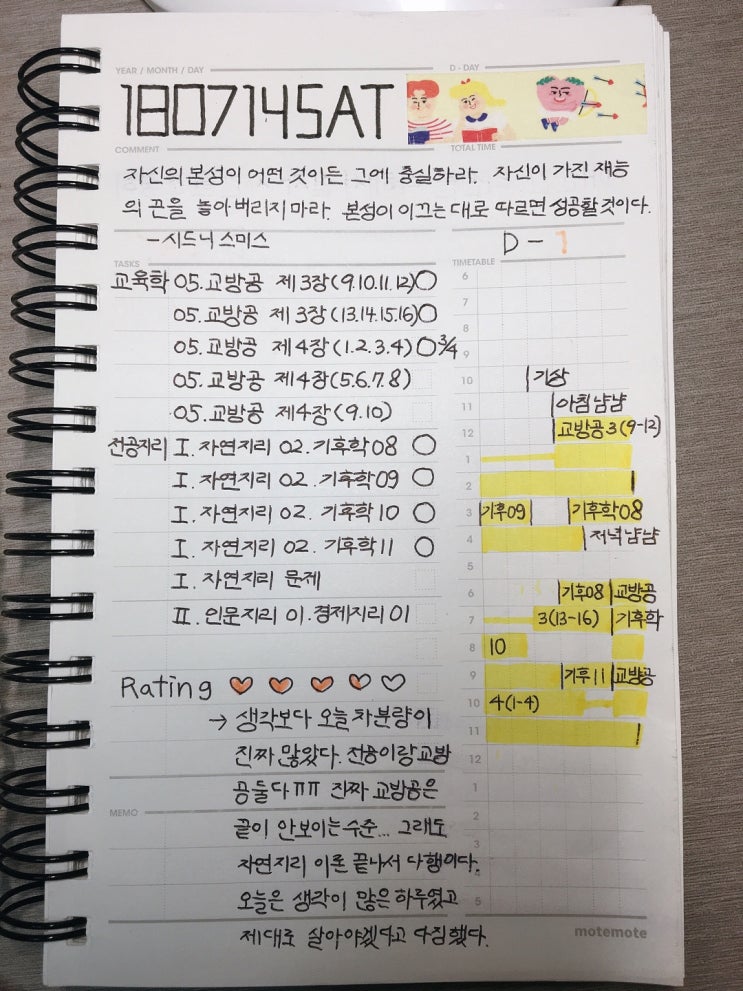 YEAR / MONTH / DAY
D - DAY
180714SAT
COMMENT
TOTAL TIME
자신의 본성이 어떤 것이든 그에 충실하라. 자신이 가진 재능
의 끈을 놓아 버리지 마라. 본성이 이끄는 대로 따르면 성공할 것이다.
- 시드니 스미스
D - 1
TASKS
교육학 05. 교방공 제 3장 (9.10.11.12)
05. 교방공 제 3장 (13.14.15.16)
05. 교방공 제 4장 (1.2.3.4) 3/4
05. 교방공 제4장 (5.6.7.8)
05. 교방공 제4장 (9.10)
전공지리 Ⅰ. 자연지리 02. 기후학 08
Ⅰ. 자연지리 02. 기후학 09
Ⅰ. 자연지리 02. 기후학 10
Ⅰ. 자연지리 02. 기후학 11
Ⅰ. 자연지리 문제
Ⅱ. 인문지리 01. 경제지리 01
Rating
→ 생각보다 오늘 차분량이
진짜 많았다. 전공이랑 교방
공 둘다 ㅠㅠ 진짜 교방공은
MEMO
끝이 안보이는 수준... 그래도
자연지리 이론 끝나서 다행이다.
오늘은 생각이 많은 하루였고
제대로 살아야겠다고 다짐했다.
TIMETABLE
6
7
8
9
10 기상
11 아침냠냠
12 교방공 3(9-12)
1
2
3 기후09 기후학08
4 저녁냠냠
5
6 기후08 교방공
7 3(13-16) 기후학
8 10
9 기후11 교방공
10 4(1-4)
11
12
1
2
3
4
5
motemote